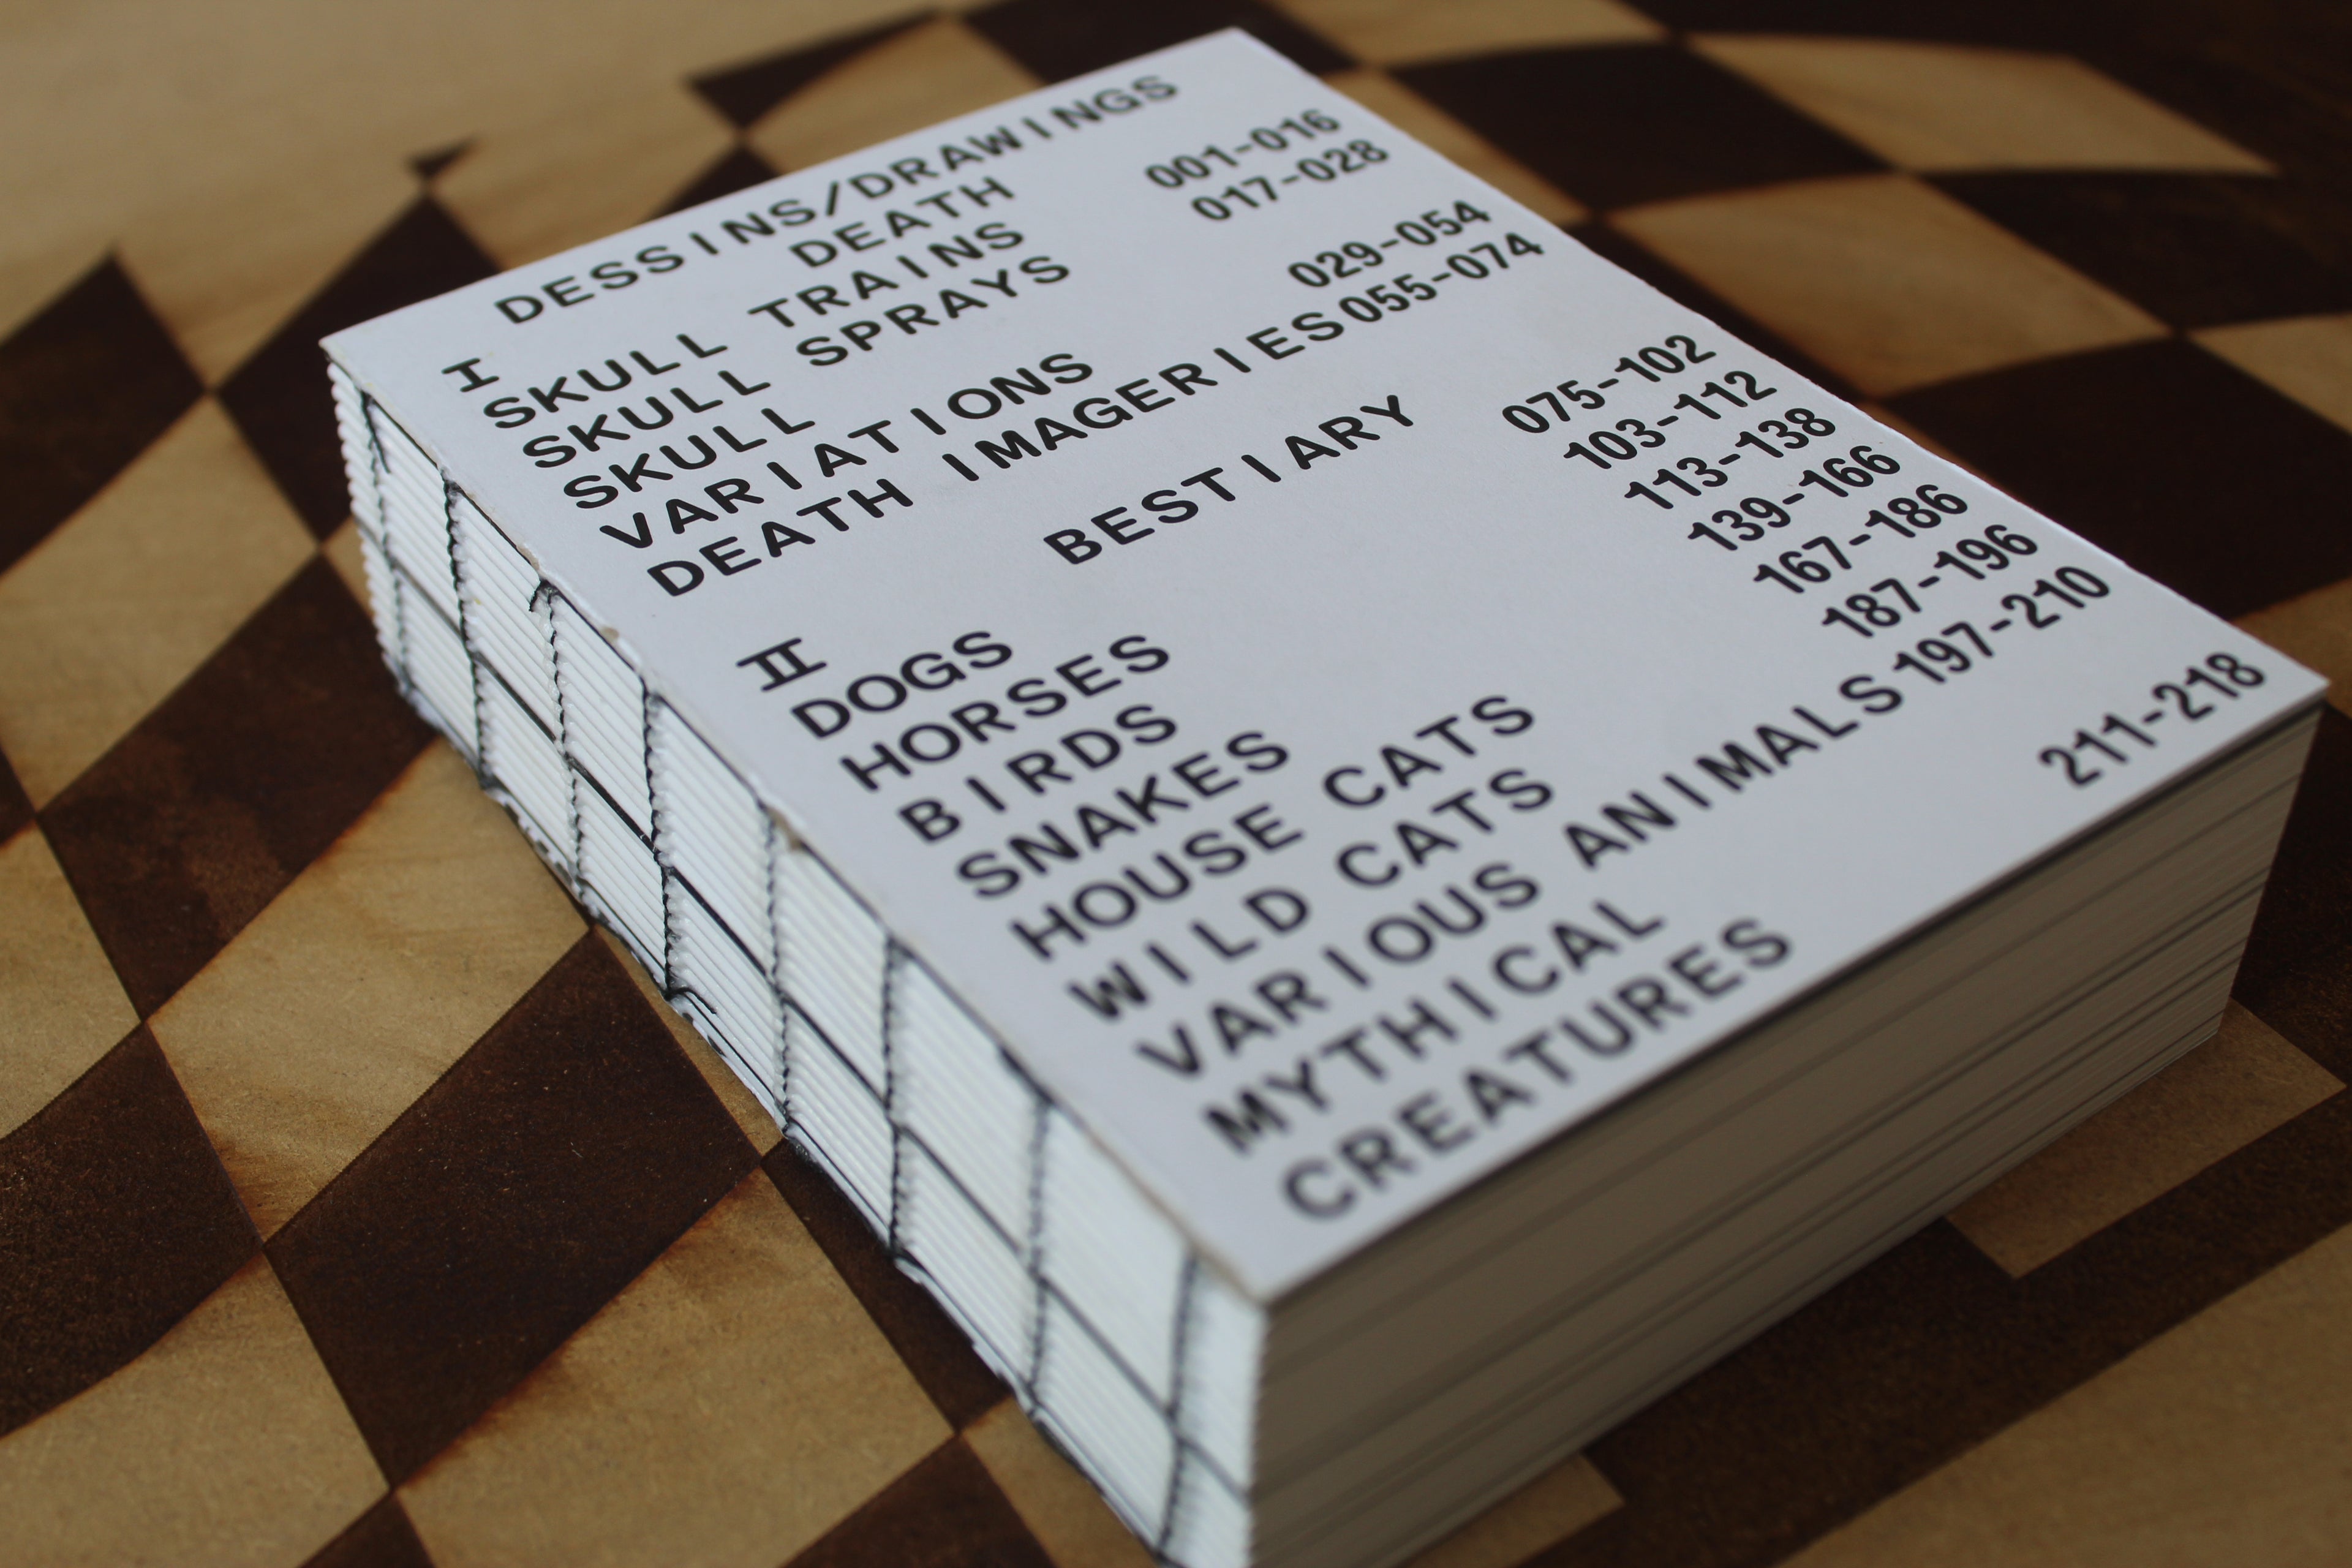 DESSINS/DRAWINGS
I DEATH
SKULL TRAINS 001-016
SKULL SPRAYS 017-028
SKULL
VARIATIONS 029-054
DEATH IMAGERIES 055-074
II BESTIARY
DOGS 075-102
HORSES 103-112
BIRDS 113-138
SNAKES 139-166
HOUSE CATS 167-186
WILD CATS 187-196
VARIOUS ANIMALS 197-210
MYTHICAL
CREATURES 211-218